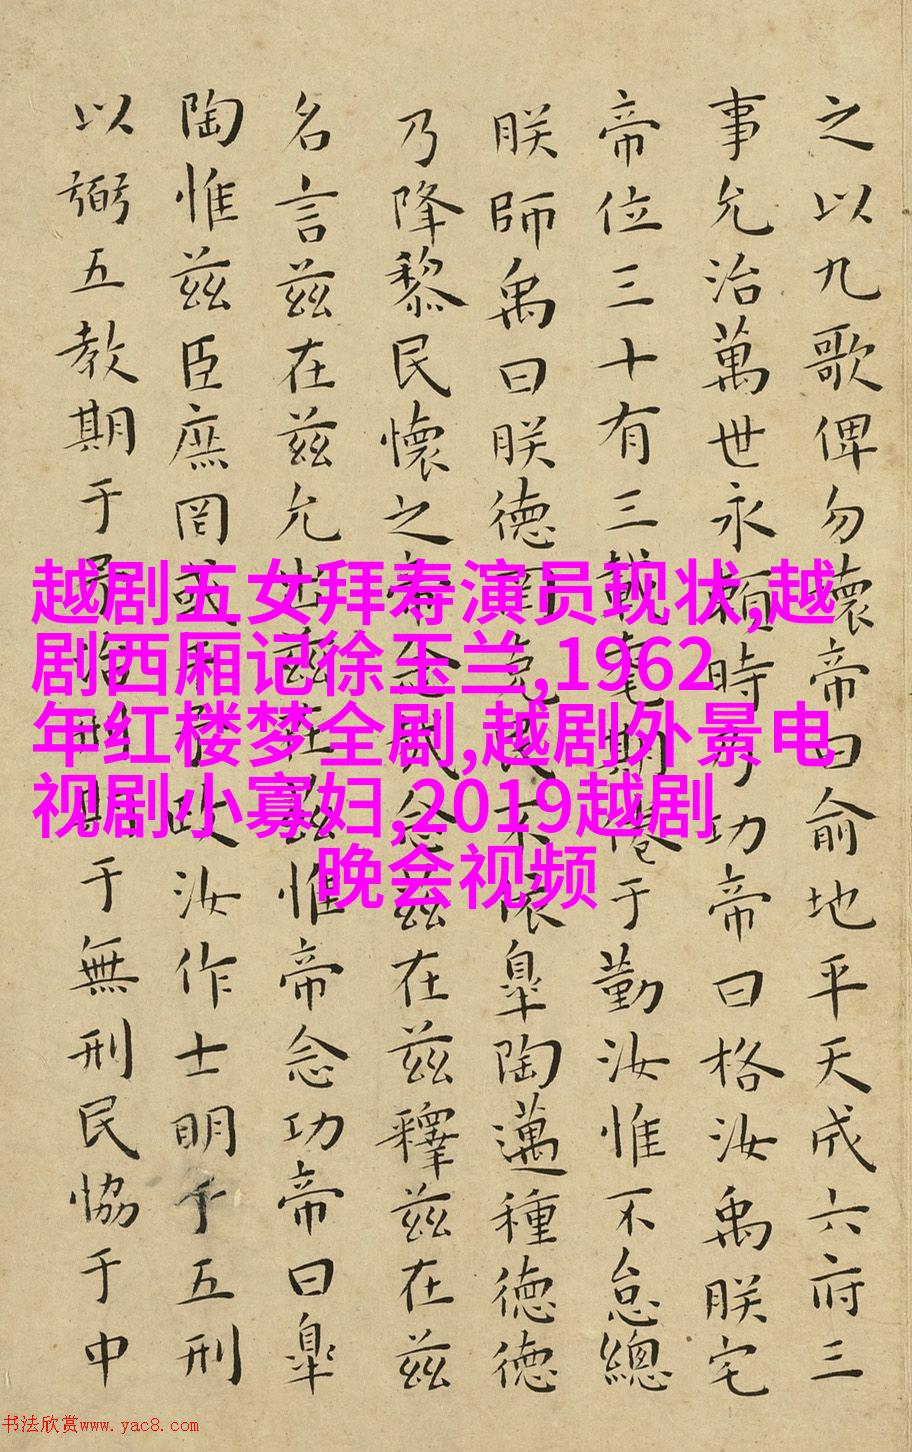 之以九歌俾勿壞帝曰俞地平天成六府三
事允治萬世永賴時乃功帝曰格汝禹朕宅
帝位三十有三載耄期倦于勤汝惟不怠總
朕師禹曰朕德罔克民不依皐陶邁種德德
乃降黎民懷之帝念哉念茲在茲釋茲在茲
名言茲在茲允出茲在茲惟帝念功帝曰皐
陶惟茲臣庶罔或干予政汝作士明于五刑
以弼五教期于予治刑期于無刑民協于中
越剧五女拜寿演员现状,越
剧西厢记徐玉兰,1962
年红楼梦全剧,越剧外景电
视剧小寡妇,2019越剧
晚会视频
书法欣赏www.yac8.com